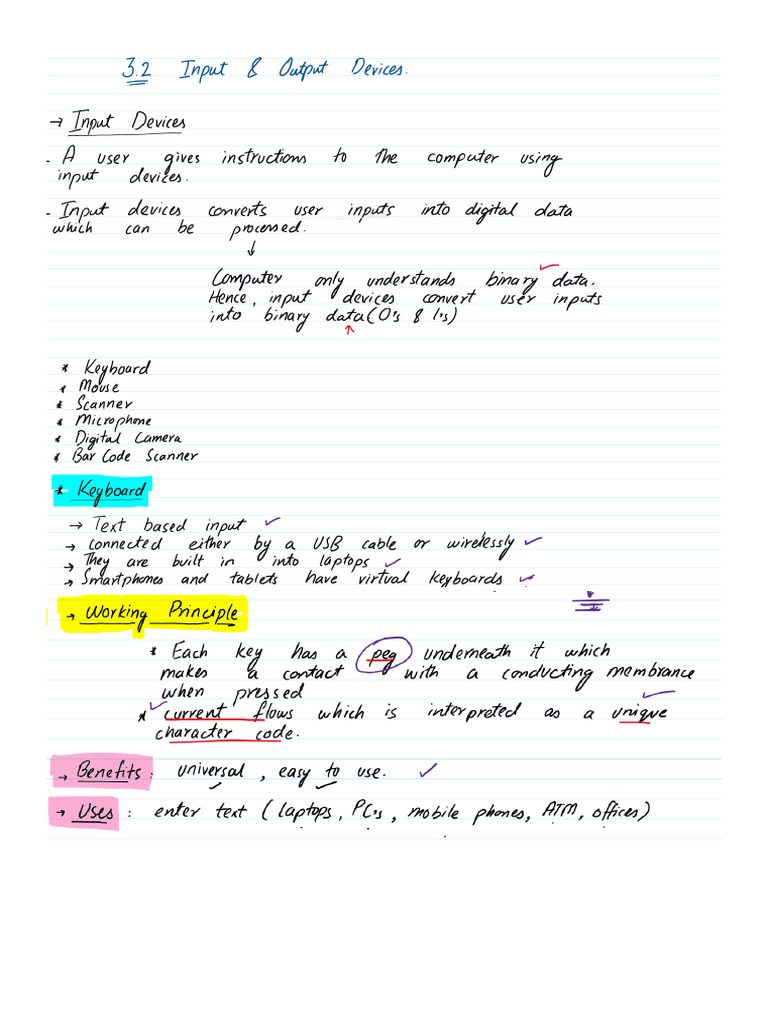 3.2 Input & Output Devices.
→ Input Devices
- A user gives instructions to the computer using
input devices.
- Input devices converts user inputs into digital data
which can be processed.
↓
Computer only understands binary data.
Hence, input devices convert user inputs
into binary data (0's & 1's)
* Keyboard
* Mouse
* Scanner
* Microphone
* Digital Camera
* Bar Code Scanner
* Keyboard
→ Text based input ✓
→ connected either by a USB cable or wirelessly ✓
→ They are built in into laptops ✓
→ Smartphones and tablets have virtual keyboards ✓
→ Working Principle
* Each key has a peg underneath it which
makes a contact with a conducting membrance
when pressed
* current flows which is interpreted as a unique
character code.
→ Benefits: universal, easy to use. ✓
→ Uses: enter text (laptops, PC's, mobile phones, ATM, offices)